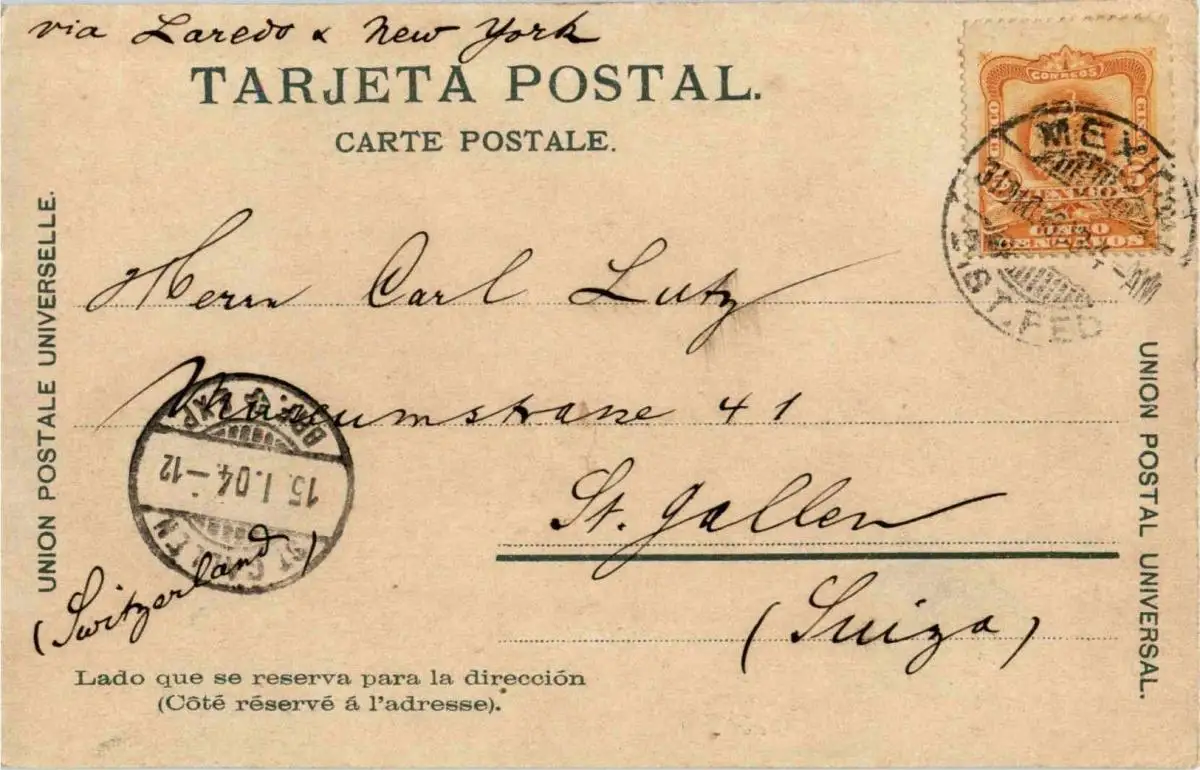 via Laredo & New York
TARJETA POSTAL.
CARTE POSTALE.
CORREOS
MEXICO
CINCO
CENTAVOS
MEXICO
DIST. FED
4-AM
UNION POSTALE UNIVERSELLE.
UNION POSTAL UNIVERSAL.
Herrn Carl Lutz
Museumstrasse 41
St. Gallen
(Suiza)
(Switzerland)
ST. GALLEN
15. I. 04.-12
Lado que se reserva para la dirección
(Côté réservé á l'adresse).